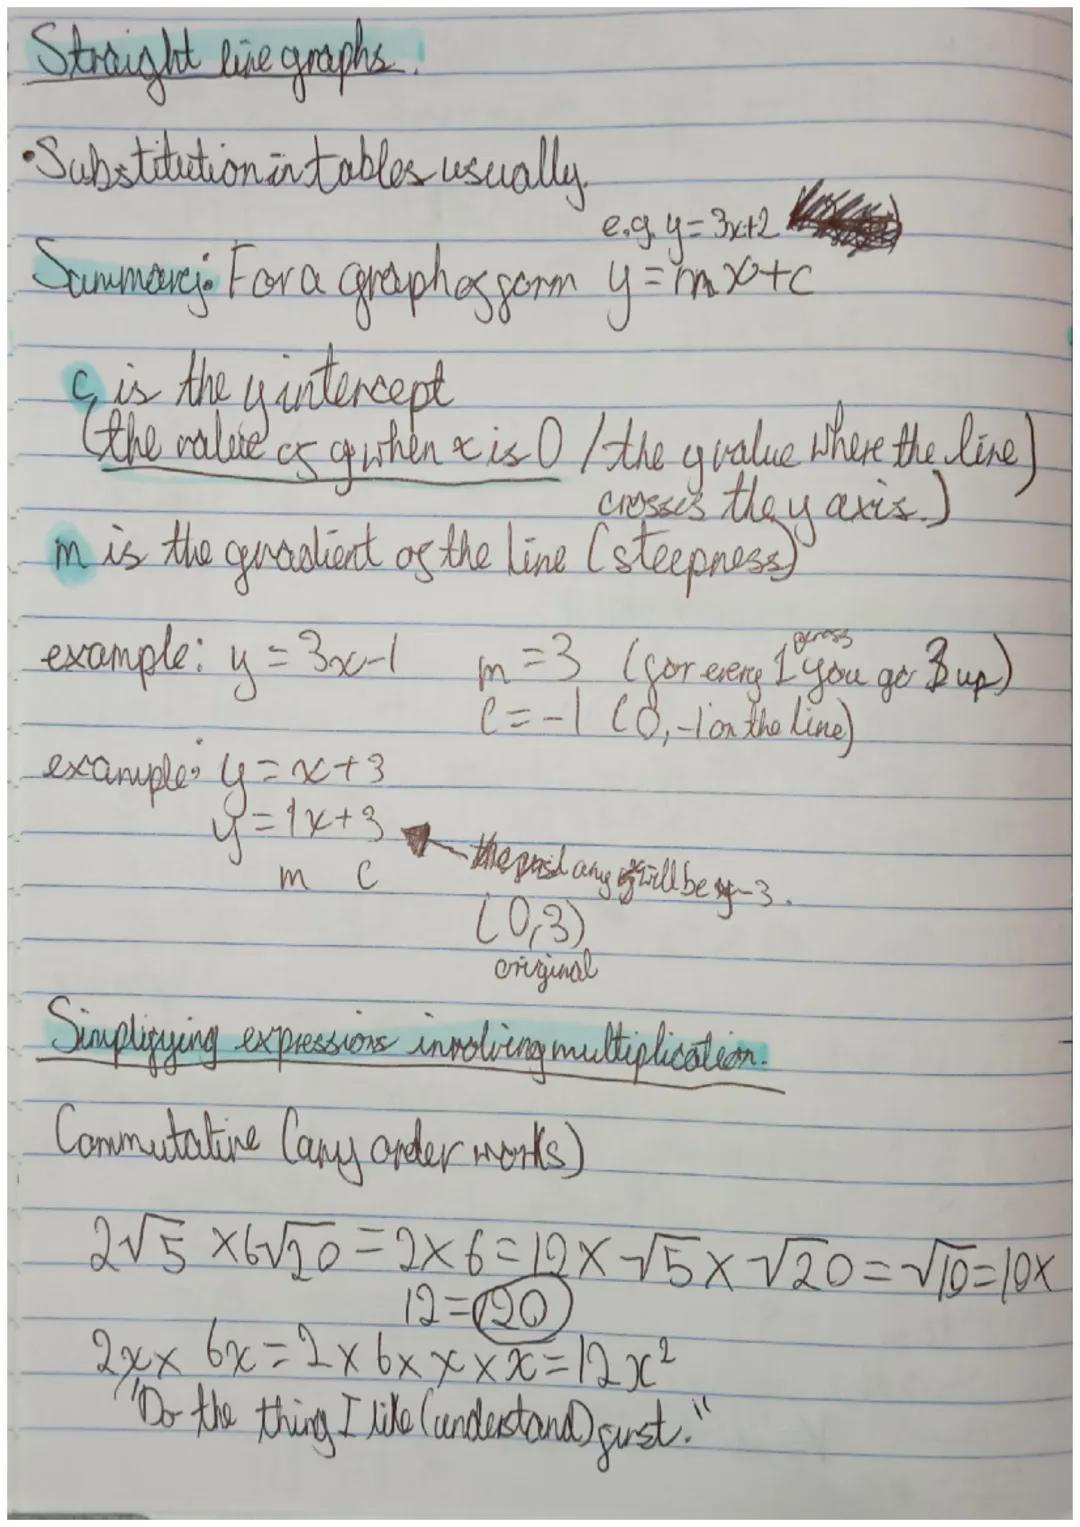 Straight line graphs.
• Substitution in tables usually.
e.g. y = 3x+2
Summary: For a graph of form y = mx + c
c is the y intercept
(the value of y when x is 0 / the y value where the line)
crosses the y axis.)
m is the gradient of the line (steepness)
example: y = 3x-1 m = 3 (for every 1 across you go 3 up)
c = -1 (0, -1 on the line)
example: y = x+3
y = 1x+3
m c
any will be -3.
(0,3)
original
Simplifying expressions involving multiplication.
Commutative (any order works)
2√5 x 6√20 = 2 x 6 = 12 x √5 x √20 = √10 = 10 x
12 = 120
2x x 6x = 2 x 6 x x x x = 12x²
"Do the thing I like (understand) first."